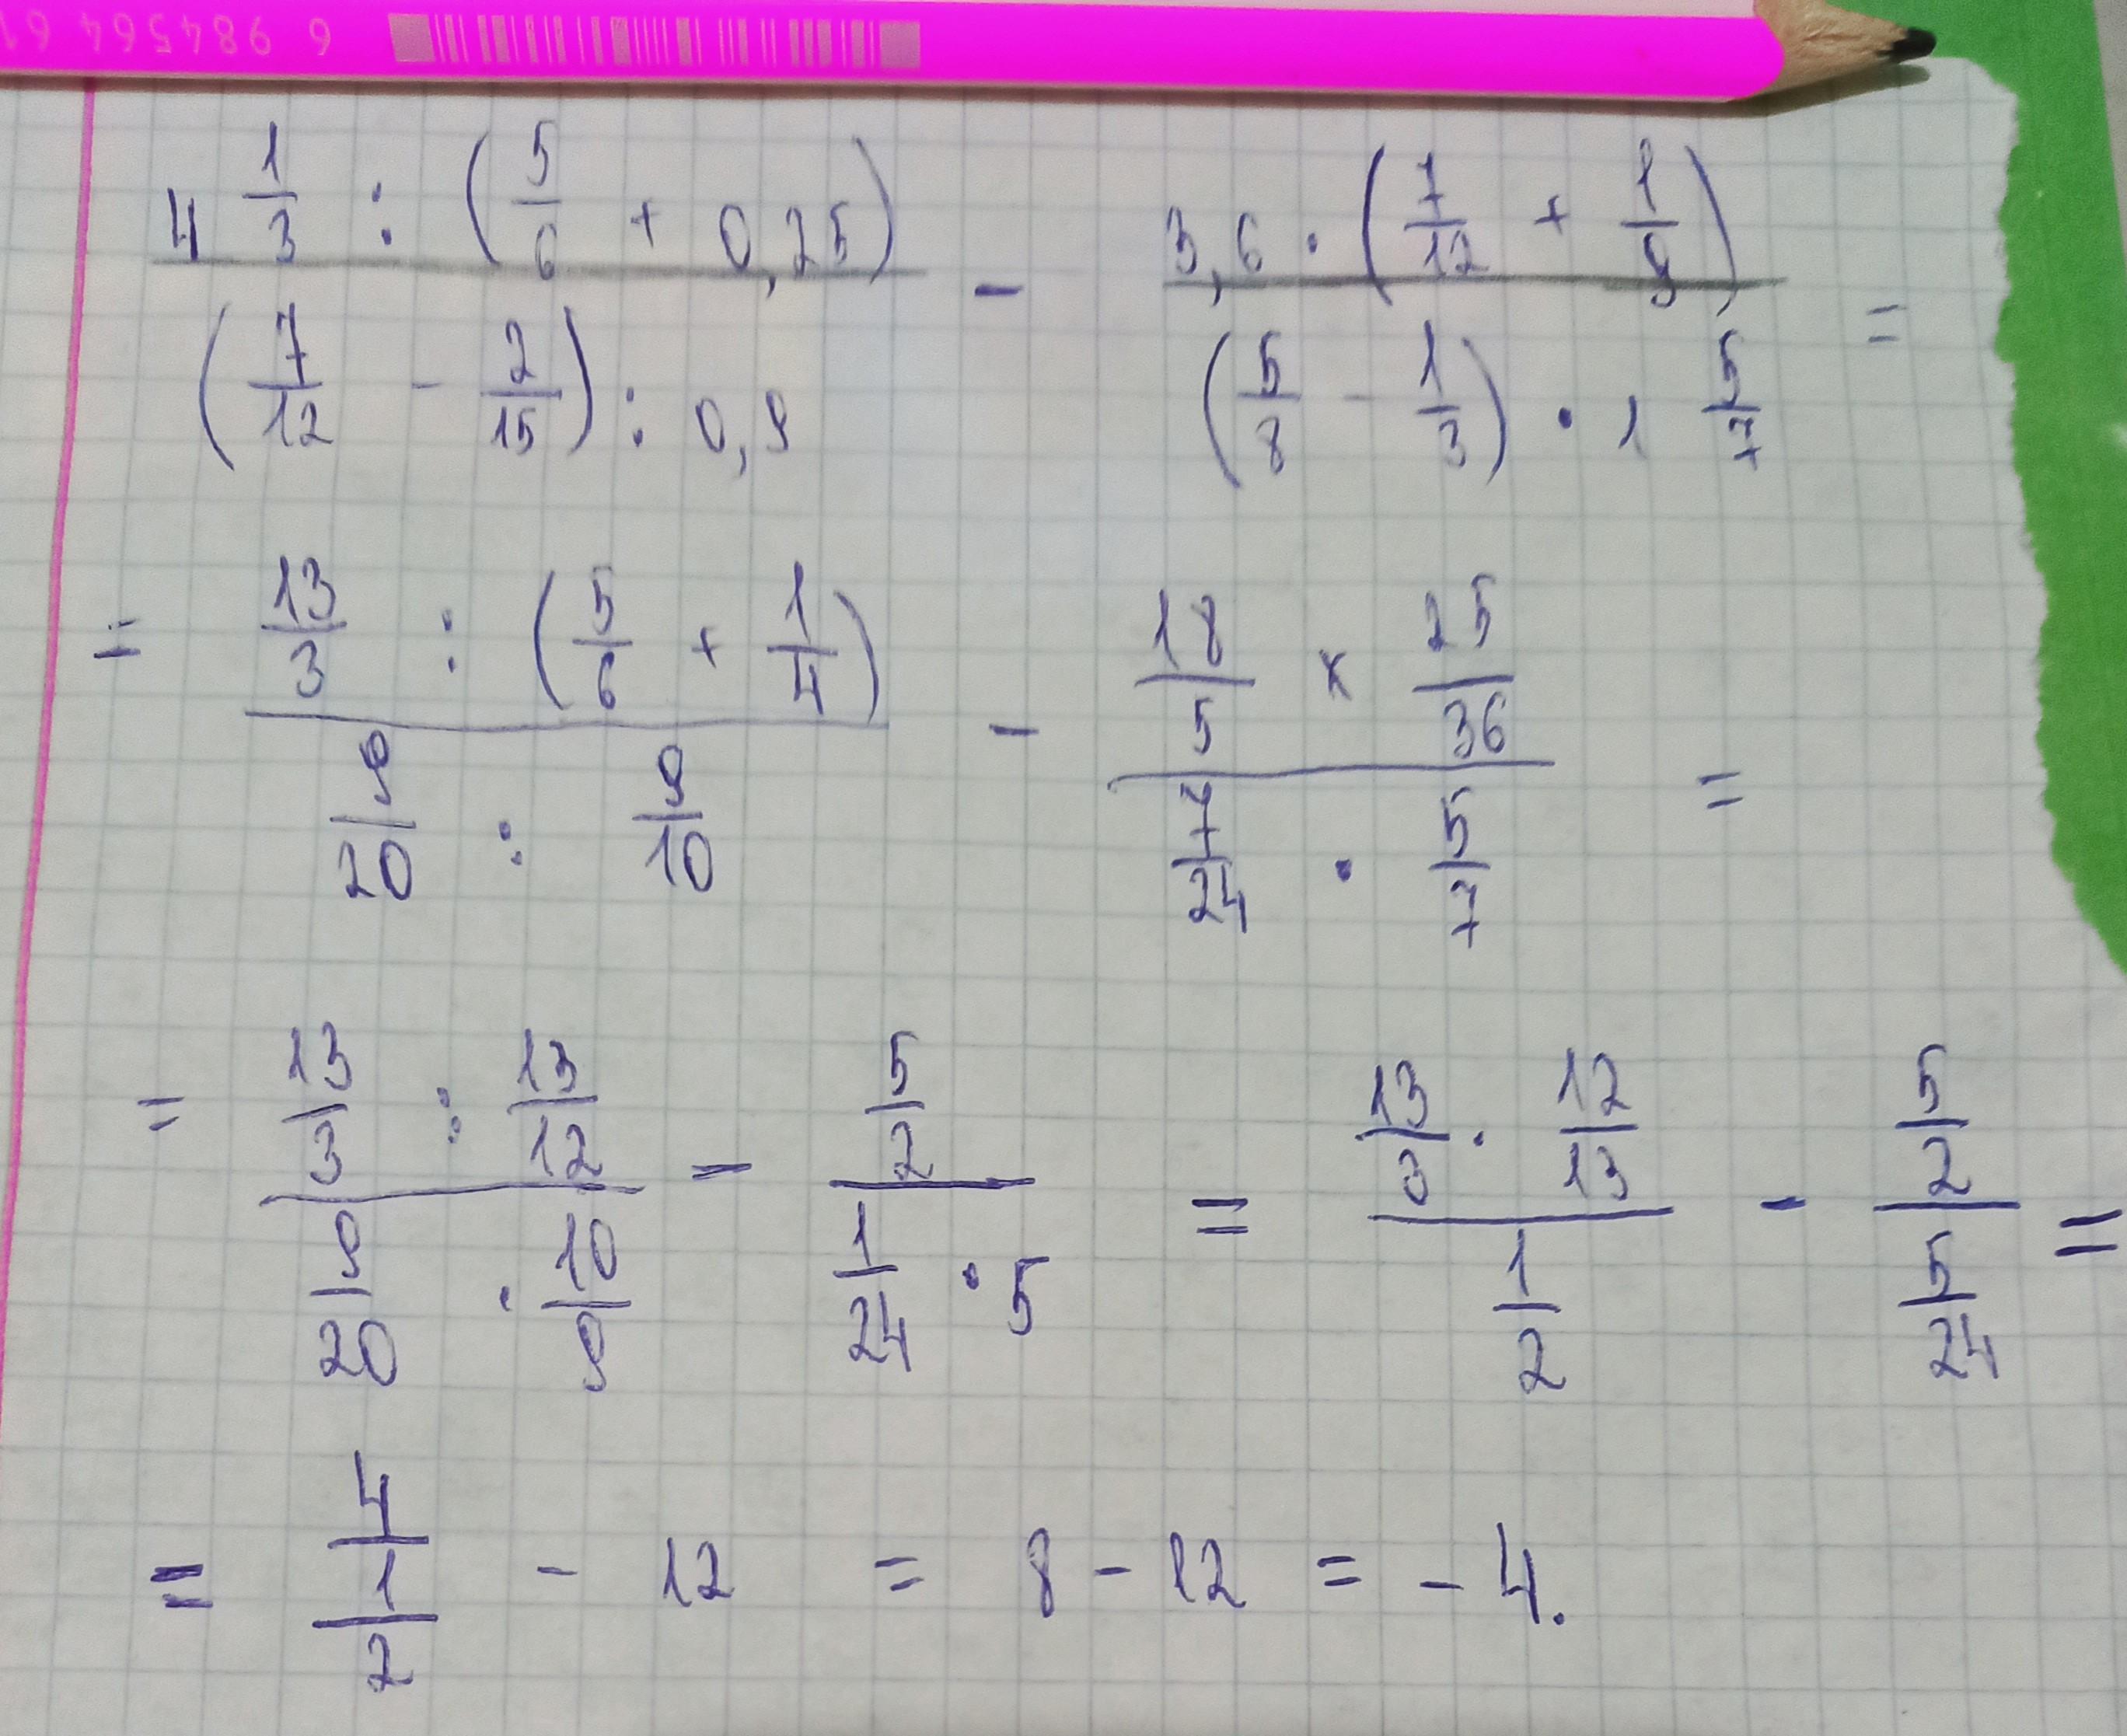 6 984564 61
4 1/3 : (5/6 + 0,25) / (7/12 - 2/15) : 0,9 - 3,6 · (7/12 + 1/9) / (5/8 - 1/3) · 1 5/7 =
= 13/3 : (5/6 + 1/4) / 9/20 : 9/10 - 18/5 × 25/36 / 7/24 · 5/7 =
= 13/3 : 13/12 / 9/20 · 10/9 - 5/2 / 1/24 · 5 = 13/3 · 12/13 / 1/2 - 5/2 / 5/24 =
= 4/1/2 - 12 = 8 - 12 = - 4.